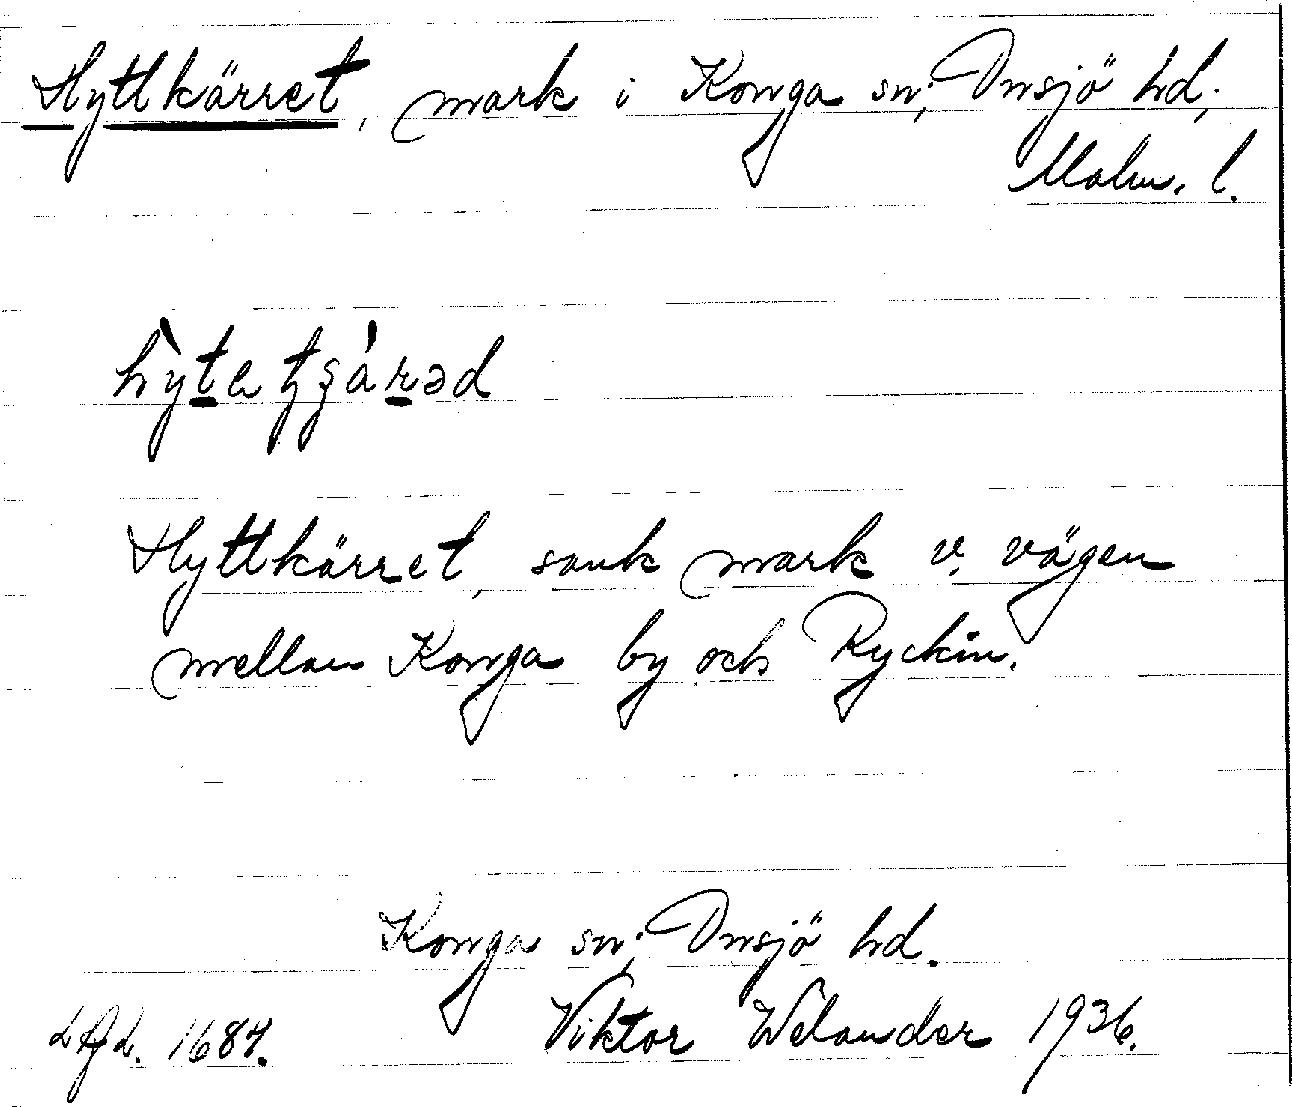 Hyttkärret, mark i Konga sn; Onsjö hd;
Malm. l.
Hyttkärret, sank mark v. vägen
mellan Konga by och Ryckin.
Konga sn; Onsjö hd.
Viktor Welander 1936.